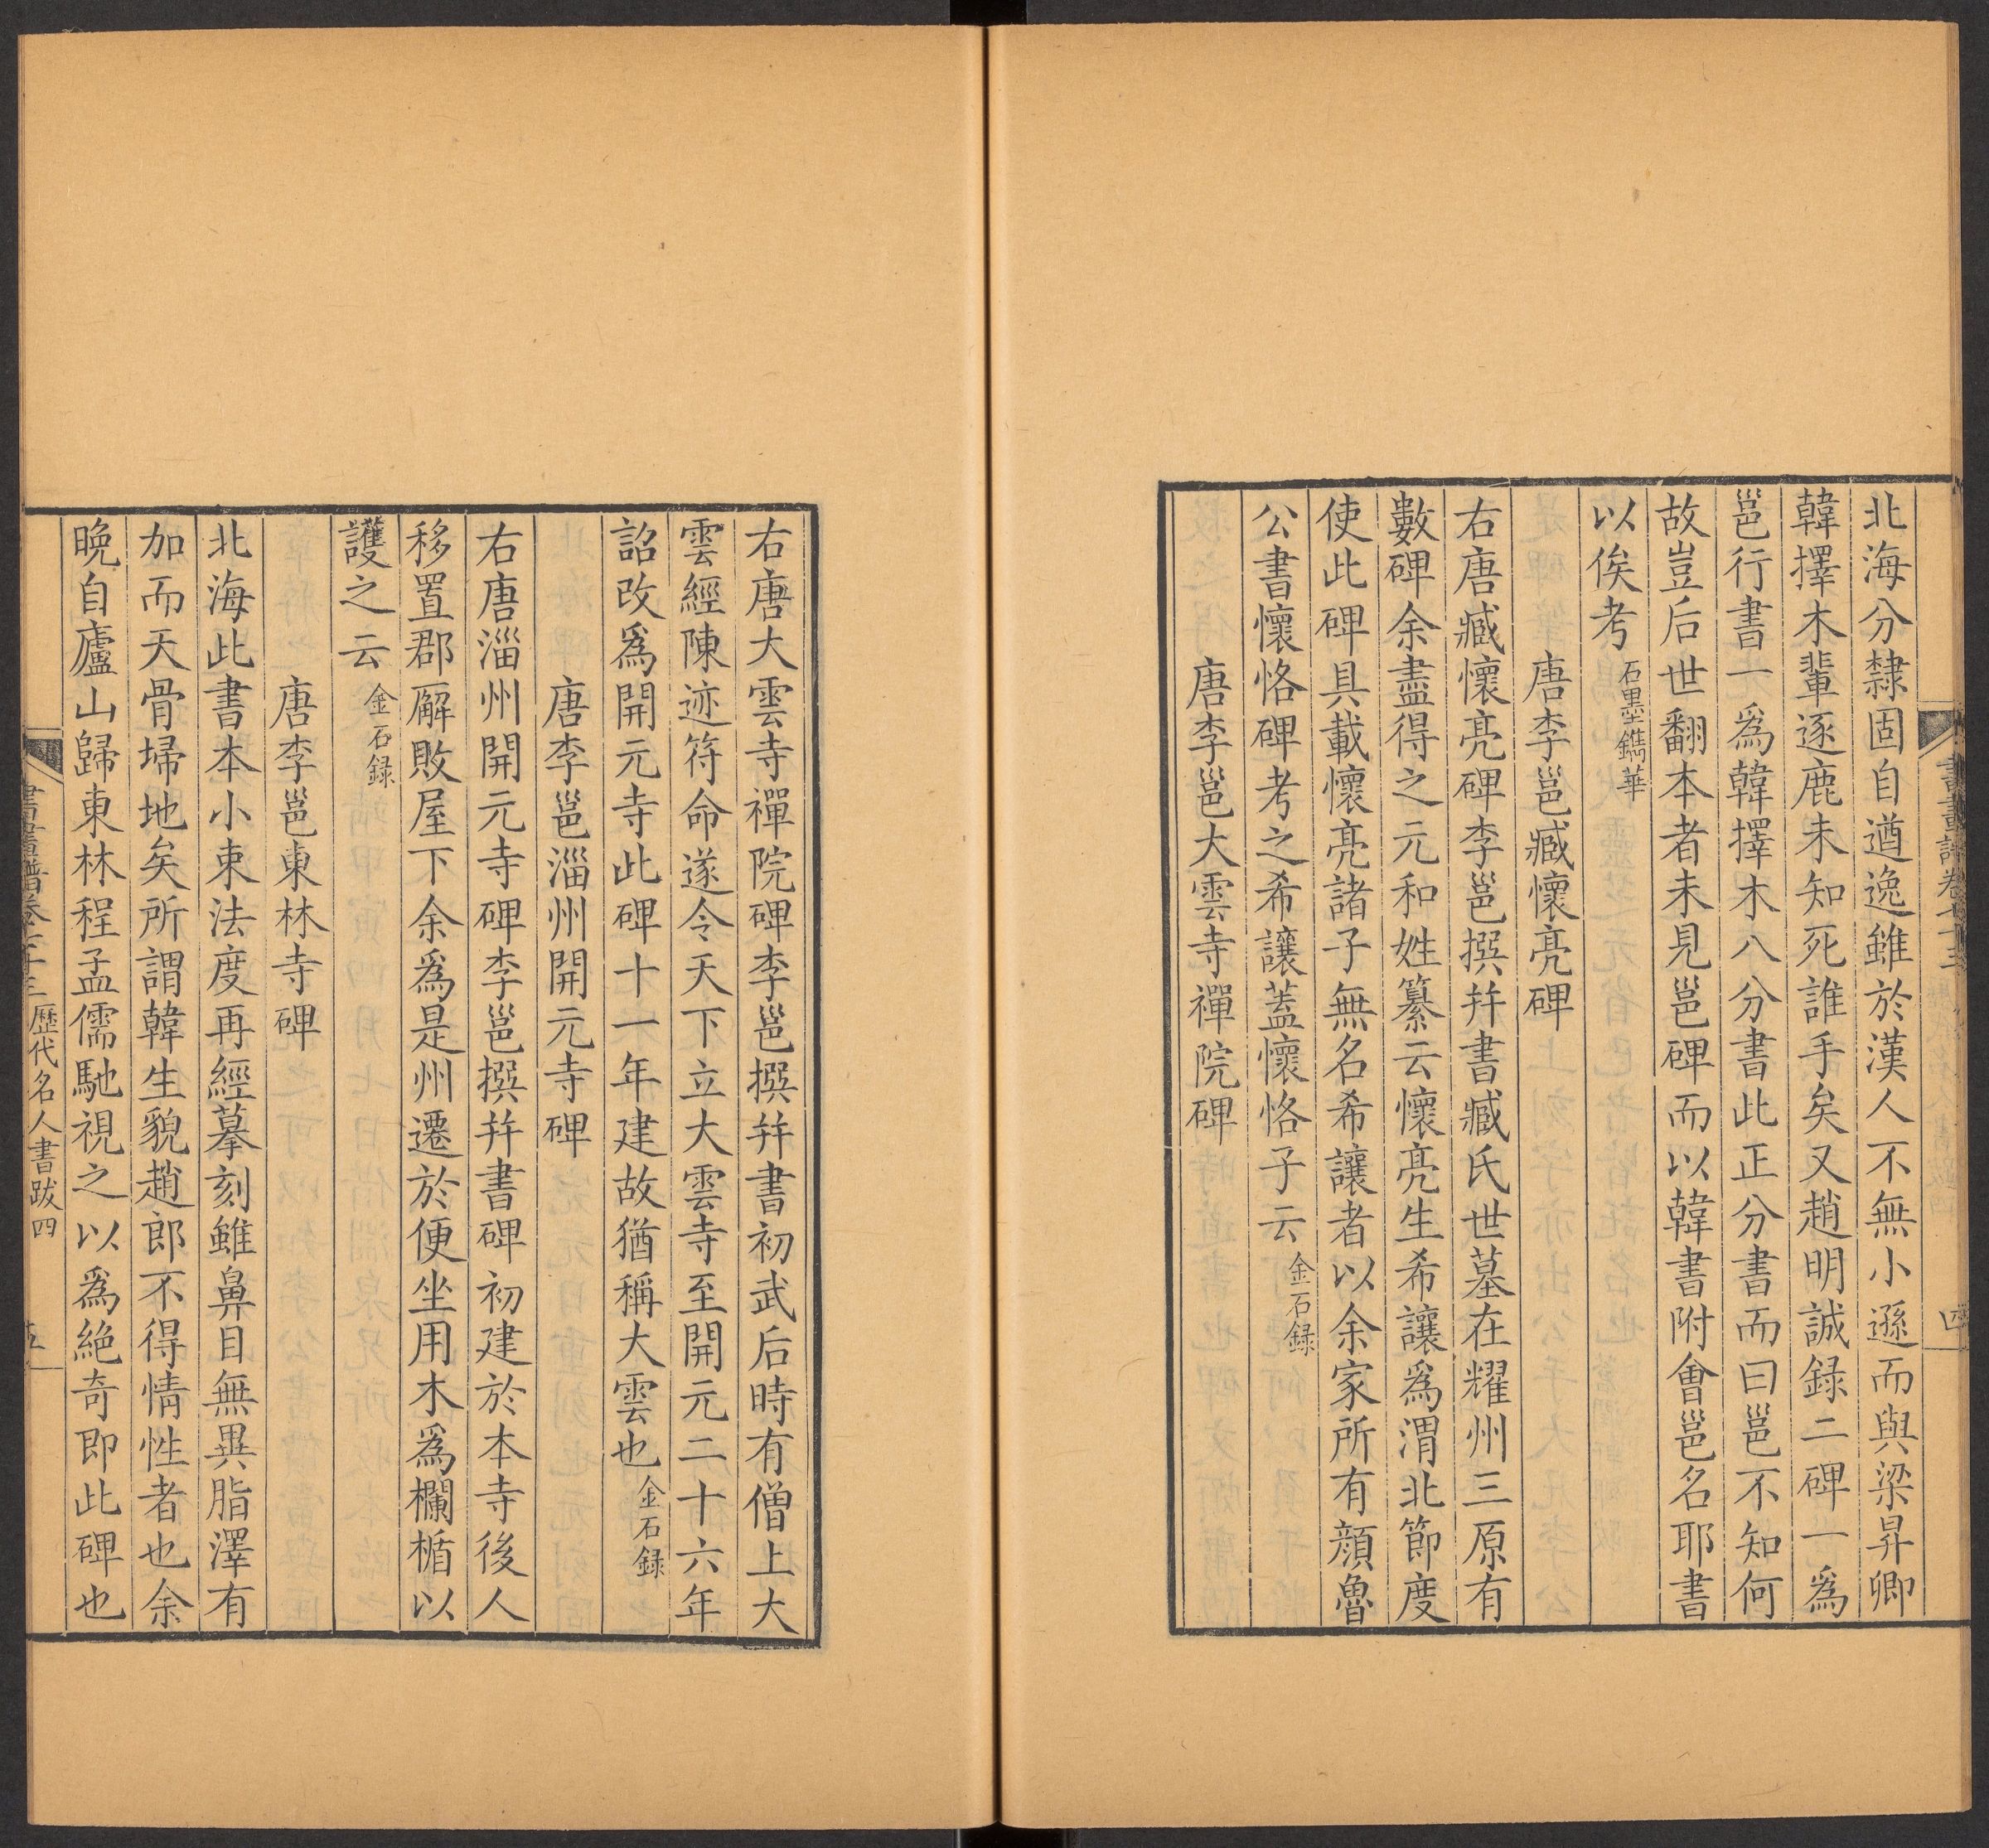 北海分隸固自遒逸雖於漢人不無小遜而與梁昇卿
韓擇木輩逐鹿未知死誰手矣又趙明誠録二碑一爲
邕行書一爲韓擇木八分書此正分書而曰邕不知何
故豈后世翻本者未見邕碑而以韓書附會邕名耶書
以俟考石墨鐫華
唐李邕臧懷亮碑
右唐臧懷亮碑李邕撰幷書臧氏世墓在耀州三原有
數碑余盡得之元和姓纂云懷亮生希讓爲渭北節度
使此碑具載懷亮諸子無名希讓者以余家所有顔魯
公書懷恪碑考之希讓蓋懷恪子云金石録
唐李邕大雲寺禪院碑
右唐大雲寺禪院碑李邕撰幷書初武后時有僧上大
雲經陳迹符命遂令天下立大雲寺至開元二十六年
詔改爲開元寺此碑十一年建故猶稱大雲也金石録
唐李邕淄州開元寺碑
右唐淄州開元寺碑李邕撰幷書碑初建於本寺後人
移置郡廨敗屋下余爲是州遷於便坐用木爲欄楯以
護之云金石録
唐李邕東林寺碑
北海此書本小束法度再經摹刻雖鼻目無異脂澤有
加而天骨埽地矣所謂韓生貌趙郎不得情性者也余
晩自廬山歸東林程孟儒馳視之以爲絶奇即此碑也
歷代名人書跋四